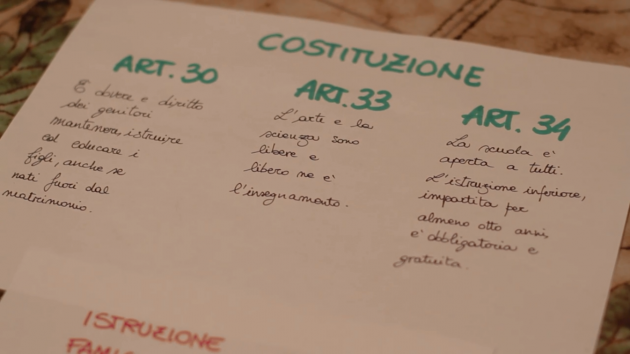 COSTITUZIONE
ART. 30
È dovere e diritto
dei genitori
mantenere istruire
ed educare i
figli, anche se
nati fuori dal
matrimonio.
ART. 33
L'arte e la
scienza sono
libere e
libero ne è
l'insegnamento.
ART. 34
La scuola e'
aperta a tutti.
L'istruzione inferiore,
impartita per
almeno otto anni,
e' obbligatoria e
gratuita.
ISTRUZIONE